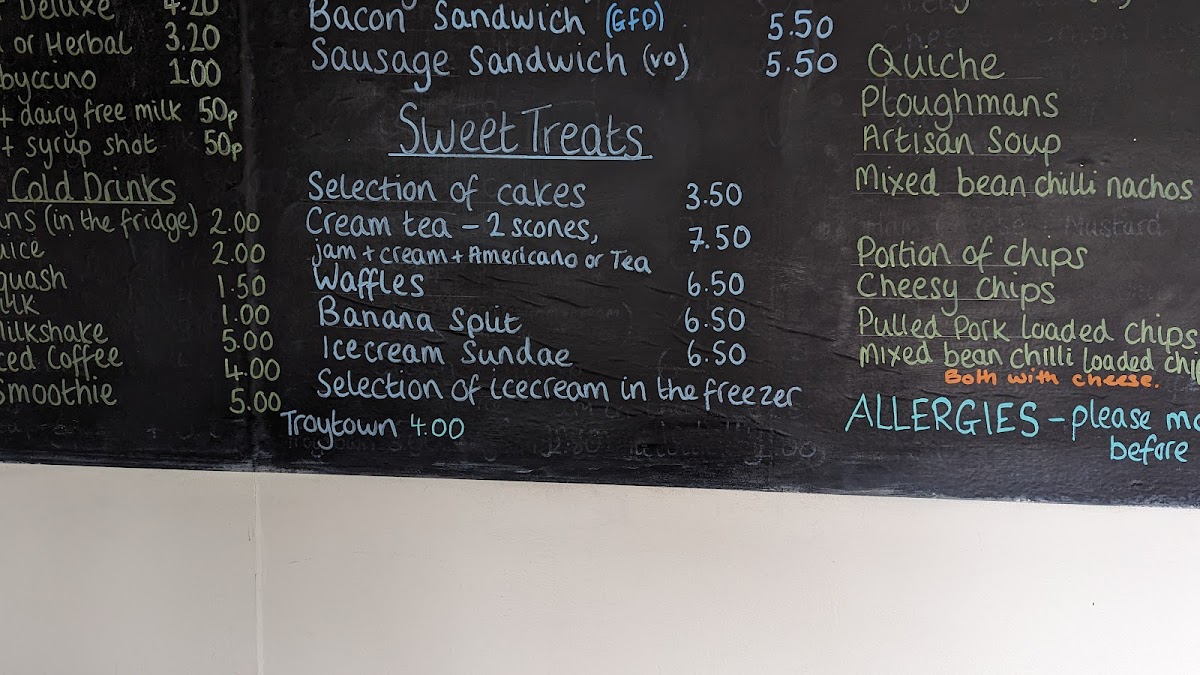 Deluxe 4.20
or Herbal 3.20
byccino 1.00
+ dairy free milk 50p
+ syrup shot 50p
Cold Drinks
ns (in the fridge) 2.00
uice 2.00
quash 1.50
ilk 1.00
ilkshake 5.00
ced Coffee 4.00
Smoothie 5.00
Bacon Sandwich (GFO) 5.50
Sausage Sandwich (VO) 5.50
Sweet Treats
Selection of cakes 3.50
Cream tea - 2 scones, 7.50
jam + cream + Americano or Tea
Waffles 6.50
Banana Split 6.50
Icecream Sundae 6.50
Selection of icecream in the freezer
Troytown 4.00
Quiche
Ploughmans
Artisan Soup
Mixed bean chilli nachos
Portion of chips
Cheesy chips
Pulled Pork loaded chips
Mixed bean chilli loaded chi
Both with cheese.
ALLERGIES - please ma
before